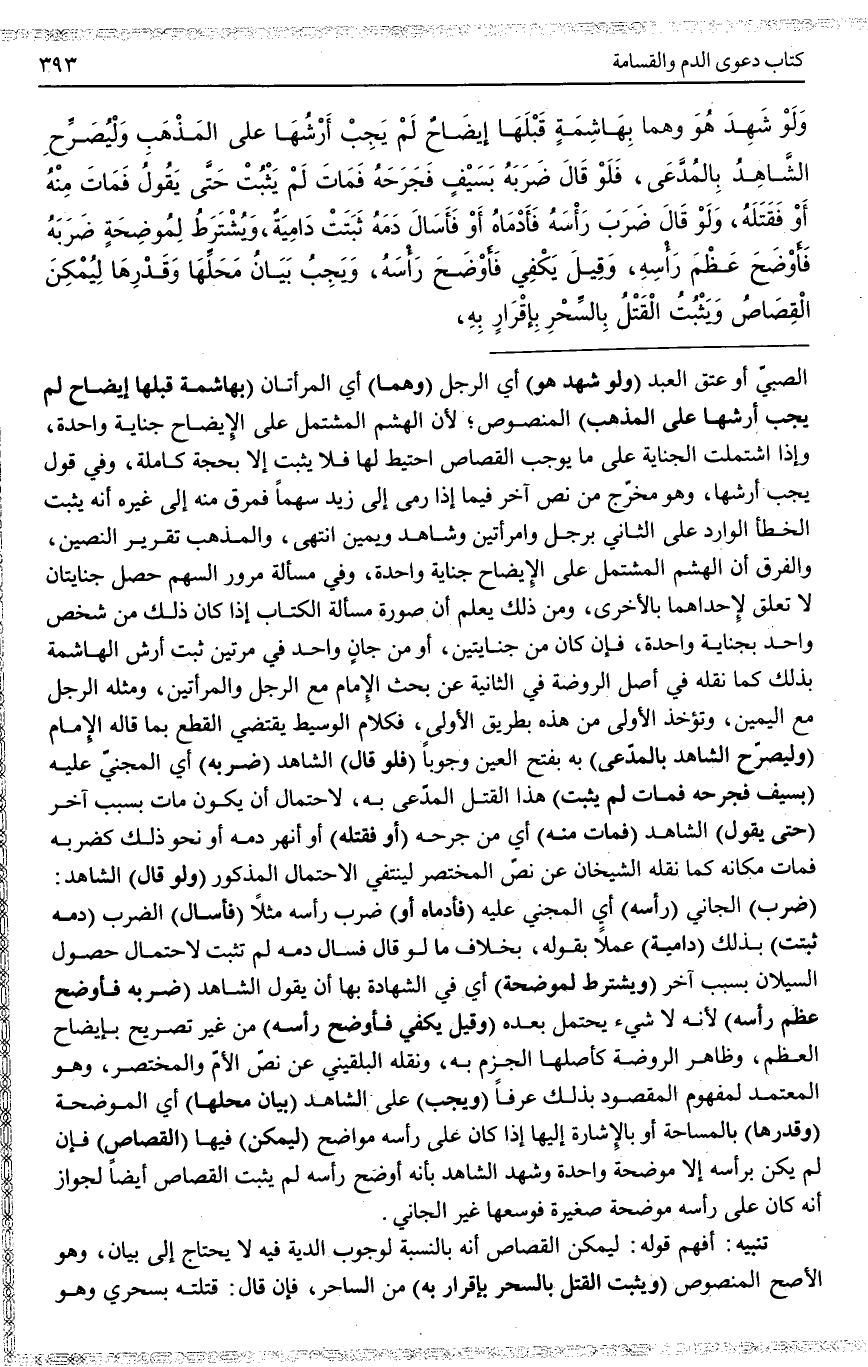 كتاب دعوى الدم والقسامة ٣٩٣
وَلَوْ شَهِدَ هُوَ وهما بِهَاشِمَةٍ قَبْلَهَا إيضَاحٌ لَمْ يَجِبْ أَرْشُهَا على المَذْهَبِ وَلْيُصَرِّحِ
الشَّاهِدُ بِالمُدَّعَى، فَلَوْ قَالَ ضَرَبَهُ بَسَيْفٍ فَجَرَحَهُ فَمَاتَ لَمْ يَثْبُتْ حَتَّى يَقُولَ فَمَاتَ مِنْهُ
أَوْ فَقَتَلَهُ، وَلَوْ قَالَ ضَرَبَ رَأْسَهُ فَأَدْمَاهُ أَوْ فَأَسَالَ دَمَهُ ثَبَتَتْ دَامِيَةٌ، وَيُشْتَرَطُ لِمُوضِحَةٍ ضَرَبَهُ
فَأَوْضَحَ عَظْمَ رَأْسِهِ، وَقِيلَ يَكْفِي فَأَوْضَحَ رَأْسَهُ، وَيَجِبُ بَيَانُ مَحَلِّهَا وَقَدْرِهَا لِيُمْكِنَ
الْقِصَاصُ وَيَثْبُتُ الْقَتْلُ بِالسِّحْرِ بِإقْرَارٍ بِهِ،
الصبيّ أو عتق العبد (ولو شهد هو) أي الرجل (وهما) أي المرأتان (بهاشمة قبلها إيضاح لم
يجب أرشها على المذهب) المنصوص؛ لأن الهشم المشتمل على الإيضاح جناية واحدة،
وإذا اشتملت الجناية على ما يوجب القصاص احتيط لها فلا يثبت إلا بحجة كاملة، وفي قول
يجب أرشها، وهو مخرّج من نص آخر فيما إذا رمى إلى زيد سهماً فمرق منه إلى غيره أنه يثبت
الخطأ الوارد على الثاني برجل وامرأتين وشاهد ويمين انتهى، والمذهب تقرير النصين،
والفرق أن الهشم المشتمل على الإيضاح جناية واحدة، وفي مسألة مرور السهم حصل جنايتان
لا تعلق لإحداهما بالأخرى، ومن ذلك يعلم أن صورة مسألة الكتاب إذا كان ذلك من شخص
واحد بجناية واحدة، فإن كان من جنايتين، أو من جانٍ واحد في مرتين ثبت أرش الهاشمة
بذلك كما نقله في أصل الروضة في الثانية عن بحث الإمام مع الرجل والمرأتين، ومثله الرجل
مع اليمين، وتؤخذ الأولى من هذه بطريق الأولى، فكلام الوسيط يقتضي القطع بما قاله الإمام
(وليصرّح الشاهد بالمدّعى) به بفتح العين وجوباً (فلو قال) الشاهد (ضربه) أي المجنيّ عليه
(بسيف فجرحه فمات لم يثبت) هذا القتل المدّعى به، لاحتمال أن يكون مات بسبب آخر
(حتى يقول) الشاهد (فمات منه) أي من جرحه (أو فقتله) أو أنهر دمه أو نحو ذلك كضربه
فمات مكانه كما نقله الشيخان عن نصّ المختصر لينتفي الاحتمال المذكور (ولو قال) الشاهد:
(ضرب) الجاني (رأسه) أي المجني عليه (فأدماه أو) ضرب رأسه مثلاً (فأسال) الضرب (دمه
ثبتت) بذلك (دامية) عملاً بقوله، بخلاف ما لو قال فسال دمه لم تثبت لاحتمال حصول
السيلان بسبب آخر (ويشترط لموضحة) أي في الشهادة بها أن يقول الشاهد (ضربه فأوضح
عظم رأسه) لأنه لا شيء يحتمل بعده (وقيل يكفي فأوضح رأسه) من غير تصريح بإيضاح
العظم، وظاهر الروضة كأصلها الجزم به، ونقله البلقيني عن نصّ الأمّ والمختصر، وهو
المعتمد لمفهوم المقصود بذلك عرفاً (ويجب) على الشاهد (بيان محلها) أي الموضحة
(وقدرها) بالمساحة أو بالإشارة إليها إذا كان على رأسه مواضح (ليمكن) فيها (القصاص) فإن
لم يكن برأسه إلا موضحة واحدة وشهد الشاهد بأنه أوضح رأسه لم يثبت القصاص أيضاً لجواز
أنه كان على رأسه موضحة صغيرة فوسعها غير الجاني.
تنبيه: أفهم قوله: ليمكن القصاص أنه بالنسبة لوجوب الدية فيه لا يحتاج إلى بيان، وهو
الأصح المنصوص (ويثبت القتل بالسحر بإقرار به) من الساحر، فإن قال: قتلته بسحري وهو